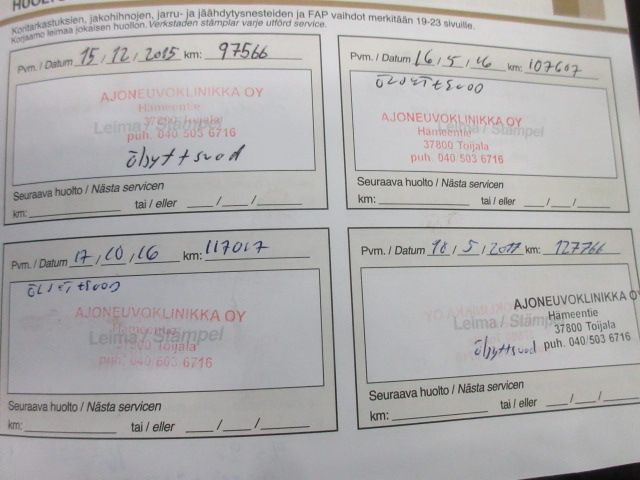 Korintarkastuksien, jakohihnojen, jarru- ja jäähdytysnesteiden ja FAP vaihdot merkitään 19-23 sivuille.
Korjaamo leimaa jokaisen huollon. Verkstaden stämplar varje utförd service.
Pvm. / Datum 15 / 12 / 2015 km: 97566
AJONEUVOKLINIKKA OY
Hämeentie
37800 Toijala
Leima / Stämpel
puh. 040 503 6716
Seuraava huolto / Nästa servicen
km: tai / eller / /
Pvm. / Datum 16 / 5 / 16 km: 107607
AJONEUVOKLINIKKA OY
Hämeentie
Leima / Stämpel
37800 Toijala
puh. 040 503 6716
Seuraava huolto / Nästa servicen
km: tai / eller / /
Pvm. / Datum 17 / 10 / 16 km: 117017
AJONEUVOKLINIKKA OY
Hämeentie
Leima / Stämpel
37800 Toijala
puh. 040 503 6716
Seuraava huolto / Nästa servicen
km: tai / eller / /
Pvm. / Datum 18 / 5 / 2017 km: 127766
AJONEUVOKLINIKKA OY
Hämeentie
Leima / Stämpel
37800 Toijala
puh. 040 503 6716
Seuraava huolto / Nästa servicen
km: tai / eller / /